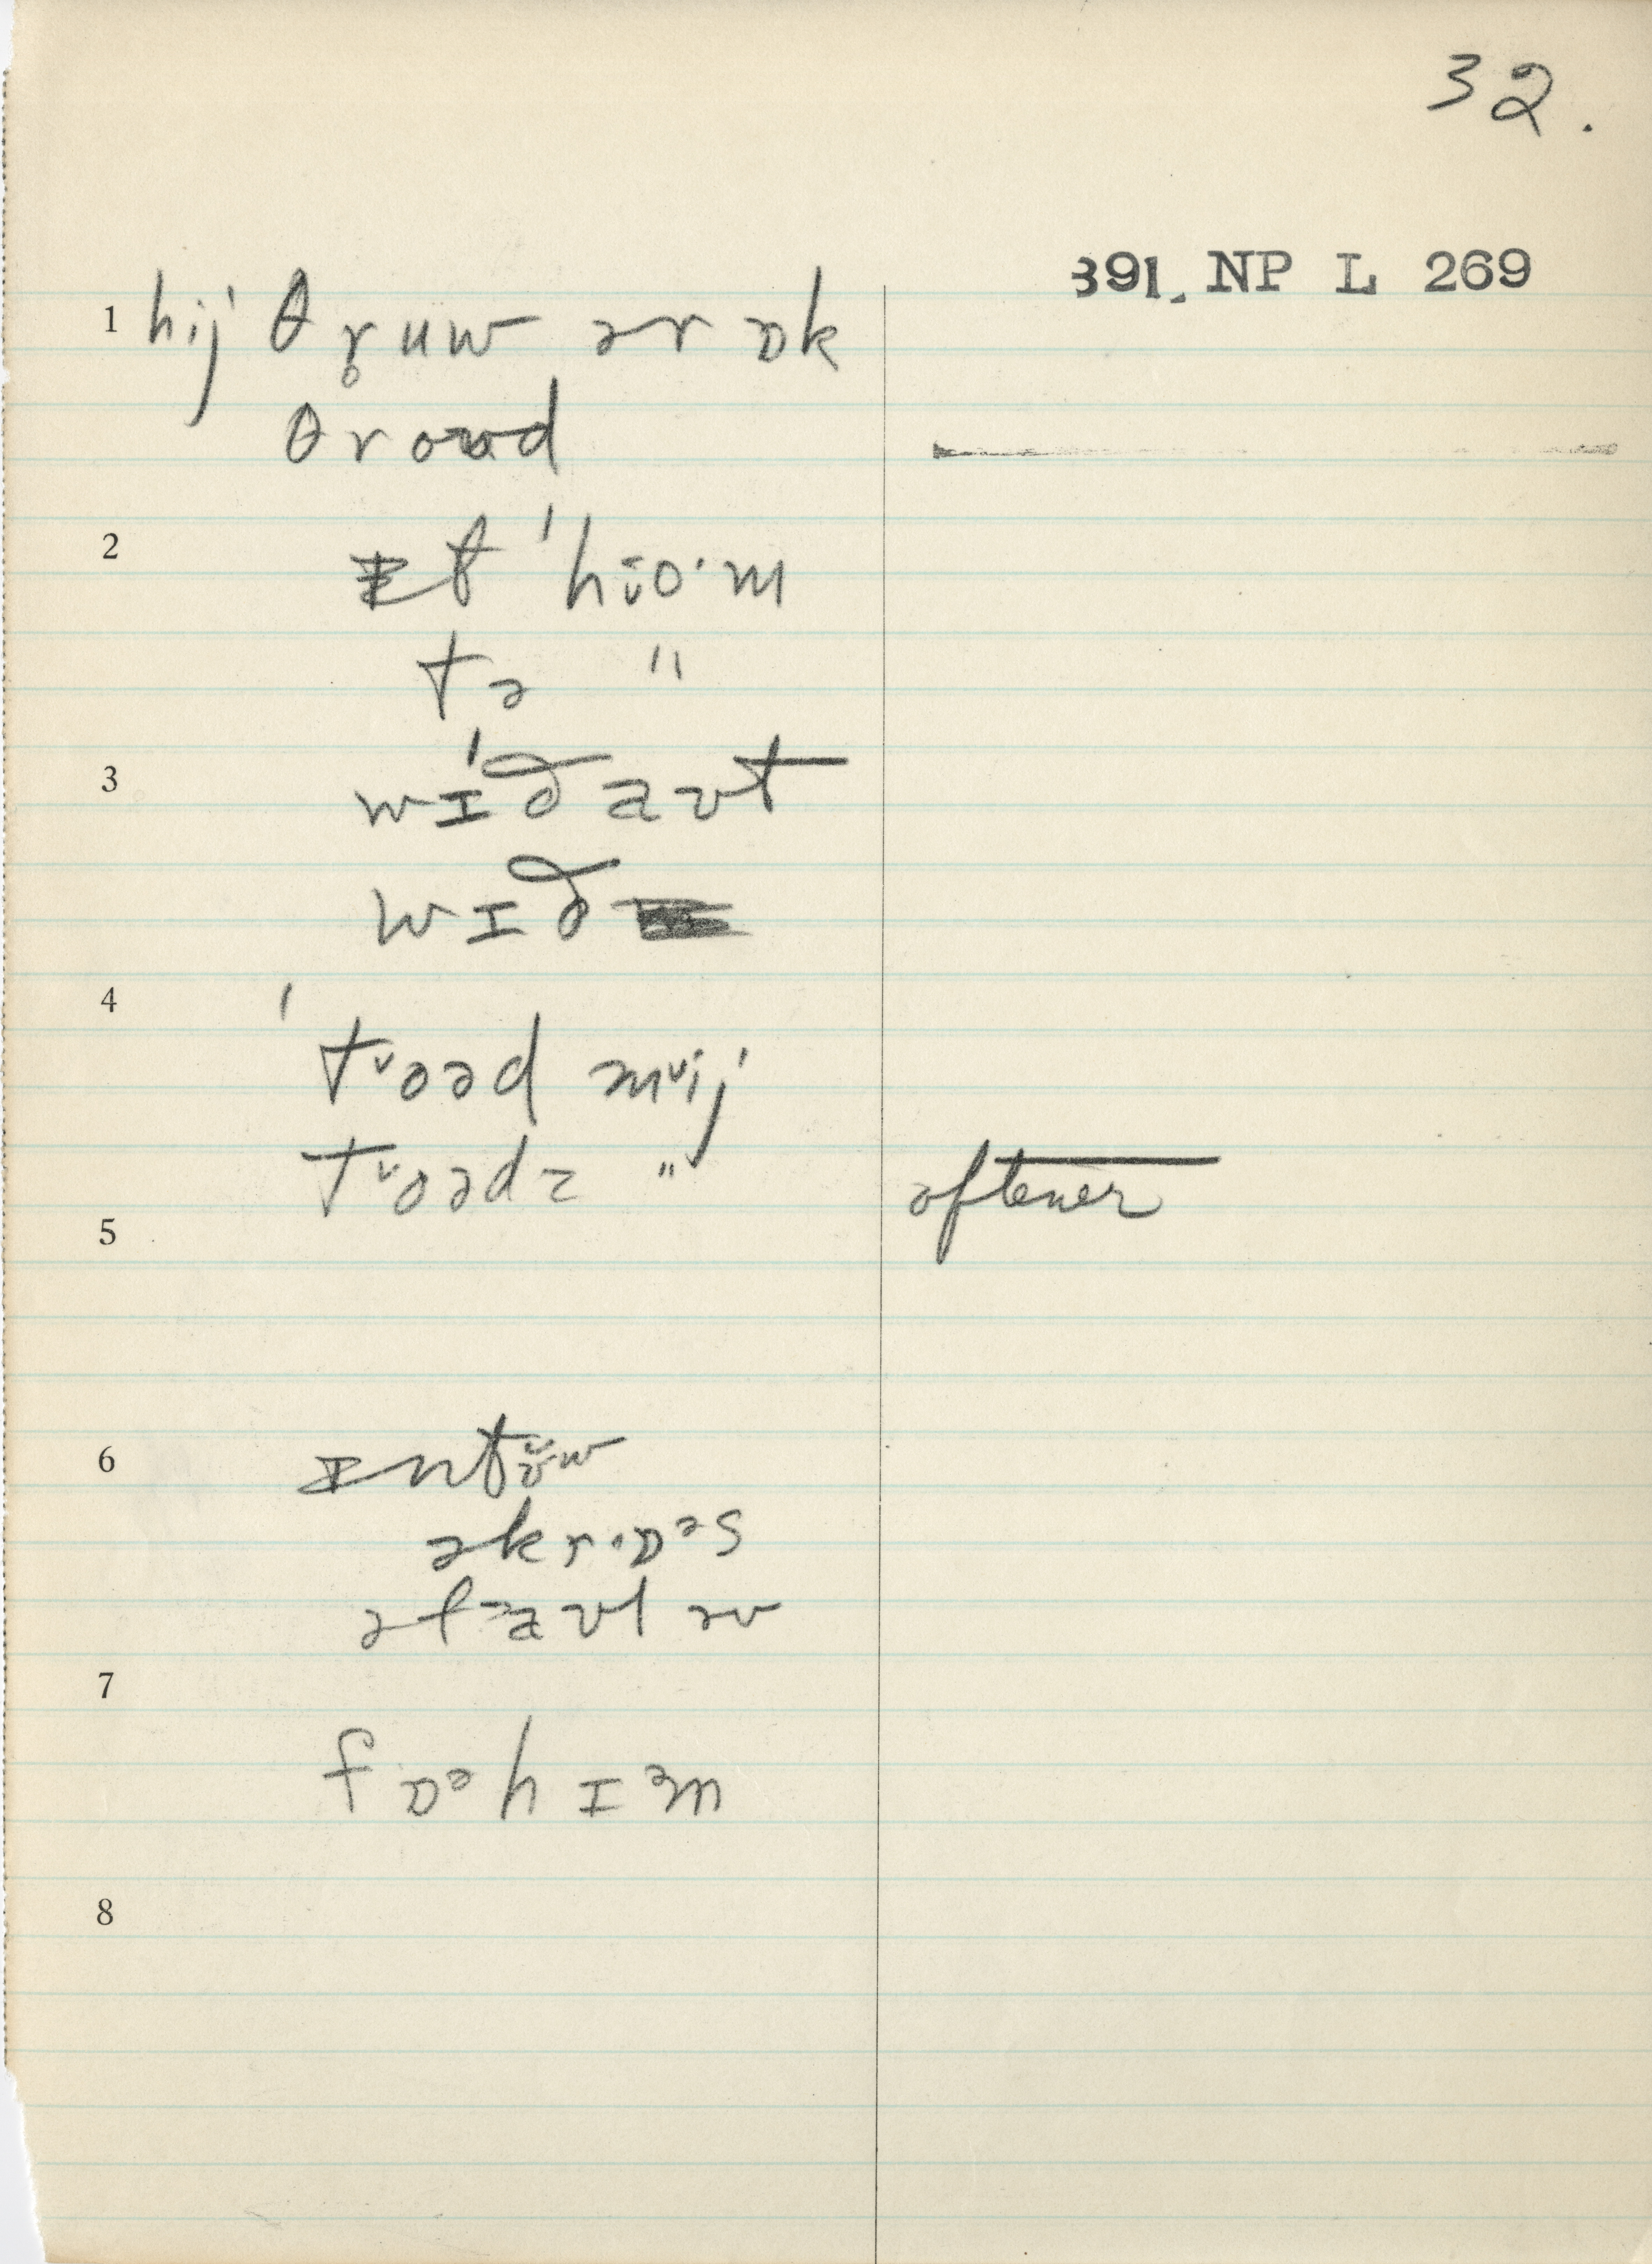 32.
391. NP L 269
1 hij θr̥uw ər ɒk
θrowəd
2 ɪt ˈhɪ̆o·m
tə "
3 wɪ́ðaʊt
wɪð
4 ˈtᵛoəd mᵛij
tᵛoədz " oftener
5
6 ɪntʊ̆w
əkrɒᵊs
əfᵊaʊl əv
7
fɒᵊhɪᵊm
8